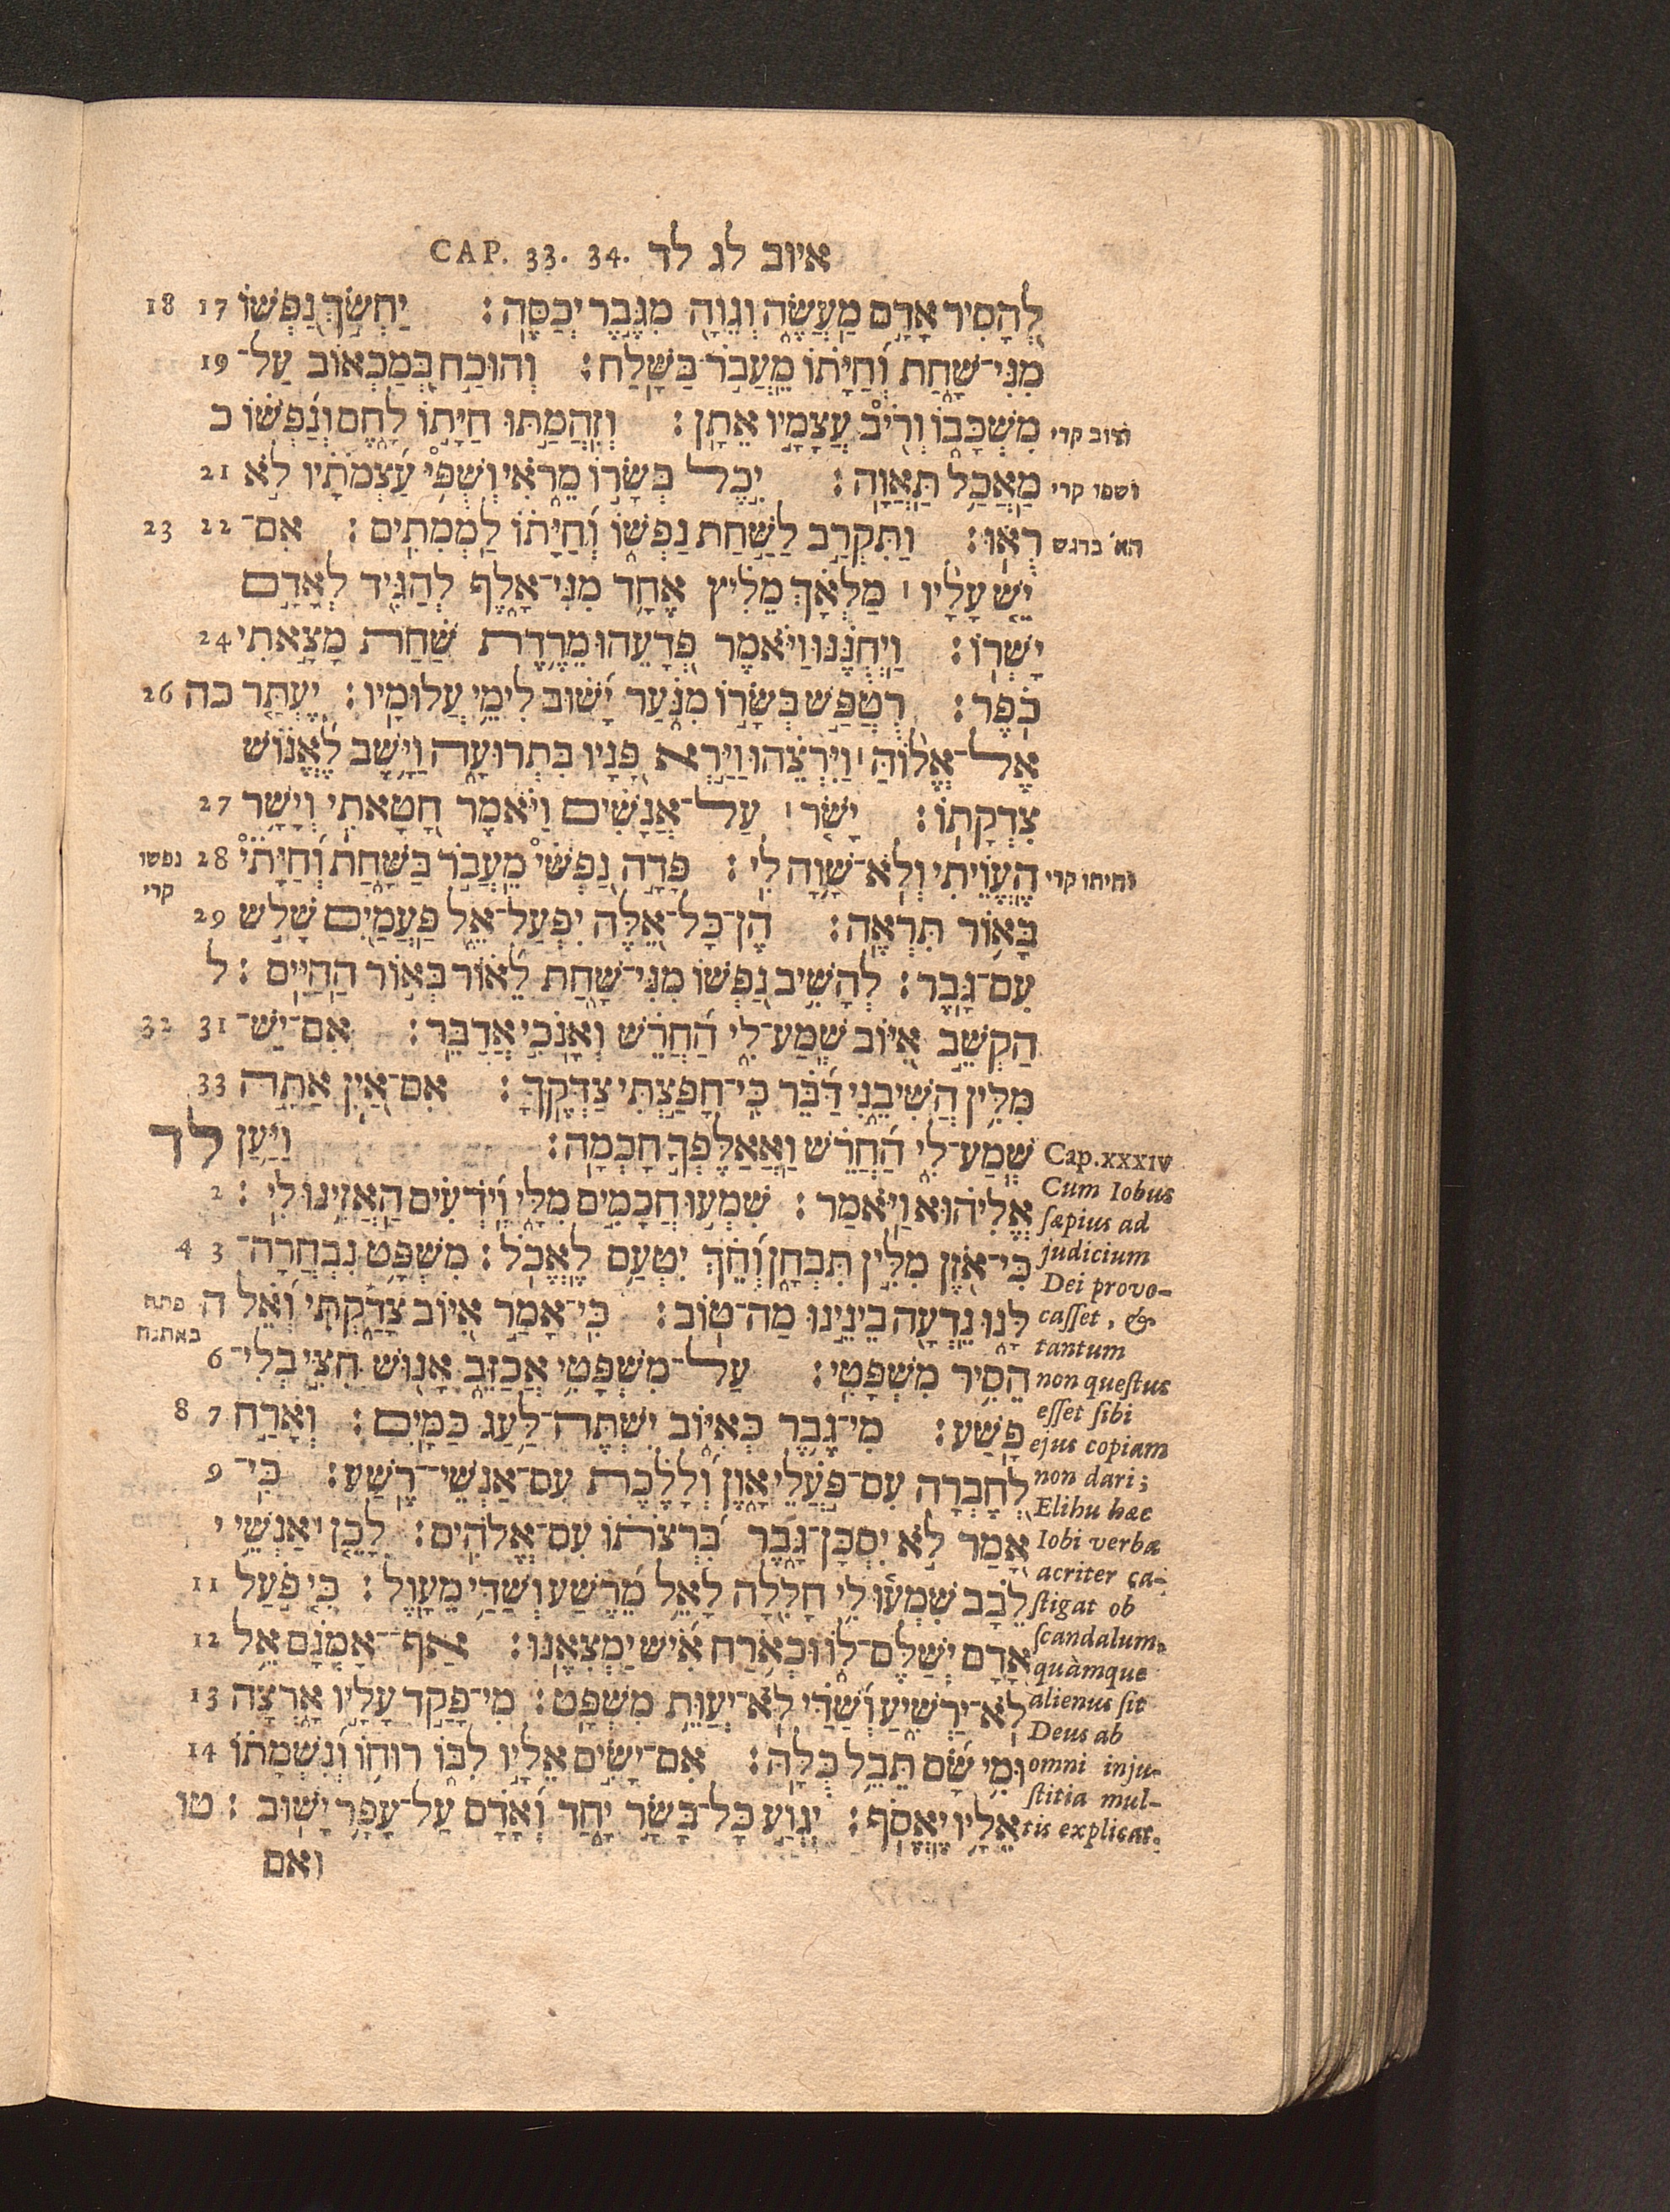 CAP. 33. 34. איוב לג לד
לְהָסִיר אָדָם מַעֲשֶׂה וְגֵוָה מִגֶּבֶר יְכַסֶּה׃ יַחְשֹׂךְ נַפְשׁוֹ 17 18
מִנִּי־שָׁחַת וְחַיָּתוֹ מֵעֲבֹר בַּשָּׁלַח׃ וְהוּכַח בְּמַכְאוֹב עַל־ 19
מִשְׁכָּבוֹ וְרִיב עֲצָמָיו אֵתָן׃ וְזִהֲמַתּוּ חַיָּתוֹ לָחֶם וְנַפְשׁוֹ כ
מַאֲכַל תַּאֲוָה׃ יִכֶל בְּשָׂרוֹ מֵרֹאִי וְשֻׁפִּי עַצְמֹתָיו לֹא 21
רֻאּוּ׃ וַתִּקְרַב לַשַּׁחַת נַפְשׁוֹ וְחַיָּתוֹ לַמְמִתִים׃ אִם־ 22 23
יֵשׁ עָלָיו ׀ מַלְאָךְ מֵלִיץ אֶחָד מִנִּי־אָלֶף לְהַגִּיד לְאָדָם
יָשְׁרוֹ׃ וַיְחֻנֶּנּוּ וַיֹּאמֶר פְּדָעֵהוּ מֵרֶדֶת שָׁחַת מָצָאתִי 24
כֹפֶר׃ רֻטֲפַשׁ בְּשָׂרוֹ מִנֹּעַר יָשׁוּב לִימֵי עֲלוּמָיו׃ יֶעְתַּר כה 26
אֶל־אֱלוֹהַּ ׀ וַיִּרְצֵהוּ וַיַּרְא פָּנָיו בִּתְרוּעָה וַיָּשֶׁב לֶאֱנוֹשׁ
צִדְקָתוֹ׃ יָשֹׁר ׀ עַל־אֲנָשִׁים וַיֹּאמֶר חָטָאתִי וְיָשָׁר 27
הֶעֱוֵיתִי וְלֹא־שָׁוָה לִי׃ פָּדָה נַפְשִׁי מֵעֲבֹר בַּשָּׁחַת וְחַיָּתִי 28
בָּאוֹר תִּרְאֶה׃ הֶן־כָּל־אֵלֶּה יִפְעַל־אֵל פַּעֲמַיִם שָׁלֹשׁ 29
עִם־גָּבֶר׃ לְהָשִׁיב נַפְשׁוֹ מִנִּי־שָׁחַת לֵאוֹר בְּאוֹר הַחַיִּים׃ ל
הַקְשֵׁב אִיּוֹב שְׁמַע־לִי הַחֲרֵשׁ וְאָנֹכִי אֲדַבֵּר׃ אִם־יֵשׁ־ 31 32
מִלִּין הֲשִׁיבֵנִי דַּבֵּר כִּי־חָפַצְתִּי צַדְּקֶךָּ׃ אִם־אַיִן אַתָּה 33
שְׁמַע־לִי הַחֲרֵשׁ וַאֲאַלֶּפְךָ חָכְמָה׃ וַיַּעַן לד
אֱלִיהוּא וַיֹּאמַר׃ שִׁמְעוּ חֲכָמִים מִלָּי וְיֹדְעִים הַאֲזִינוּ לִי׃ 2
כִּי־אֹזֶן מִלִּין תִּבְחָן וְחֵךְ יִטְעַם לֶאֱכֹל׃ מִשְׁפָּט נִבְחֲרָה־ 3 4
לָּנוּ נֵדְעָה בֵינֵינוּ מַה־טּוֹב׃ כִּי־אָמַר אִיּוֹב צָדַקְתִּי וְאֵל ה
הֵסִיר מִשְׁפָּטִי׃ עַל־מִשְׁפָּטִי אֲכַזֵּב אָנוּשׁ חִצִּי בְלִי־ 6
פָשַׁע׃ מִי־גֶבֶר כְּאִיּוֹב יִשְׁתֶּה־לַּעַג כַּמָּיִם׃ וְאָרַח 7 8
לְחֶבְרָה עִם־פֹּעֲלֵי אָוֶן וְלָלֶכֶת עִם־אַנְשֵׁי־רֶשַׁע׃ כִּי־ 9
אָמַר לֹא יִסְכָּן־גָּבֶר בִּרְצֹתוֹ עִם־אֱלֹהִים׃ לָכֵן ׀ אַנְשֵׁי י
לֵבָב שִׁמְעוּ לִי חָלִלָה לָאֵל מֵרֶשַׁע וְשַׁדַּי מֵעָוֶל׃ כִּי פֹעַל 11
אָדָם יְשַׁלֶּם־לוֹ וּכְאֹרַח אִישׁ יַמְצִאֶנּוּ׃ אַף־אָמְנָם אֵל 12
לֹא־יַרְשִׁיעַ וְשַׁדַּי לֹא־יְעַוֵּת מִשְׁפָּט׃ מִי־פָקַד עָלָיו אָרְצָה 13
וּמִי שָׂם תֵּבֵל כֻּלָּהּ׃ אִם־יָשִׂים אֵלָיו לִבּוֹ רוּחוֹ וְנִשְׁמָתוֹ 14
אֵלָיו יֶאֱסֹף׃ יִגְוַע כָּל־בָּשָׂר יָחַד וְאָדָם עַל־עָפָר יָשׁוּב׃ טו
ואם
ורוב קרי
ושפו קרי
הא׳ ברגש
וחיתו קרי
נפשו
קרי
פתח
באתנח
Cap. XXXIV
Cum Iobus
sæpius ad
judicium
Dei provo-
casset, &
tantum
non questus
esset sibi
ejus copiam
non dari;
Elihu hæc
Iobi verba
acriter ca-
stigat ob
scandalum,
quàmque
alienus sit
Deus ab
omni inju-
stitia mul-
tis explicat.